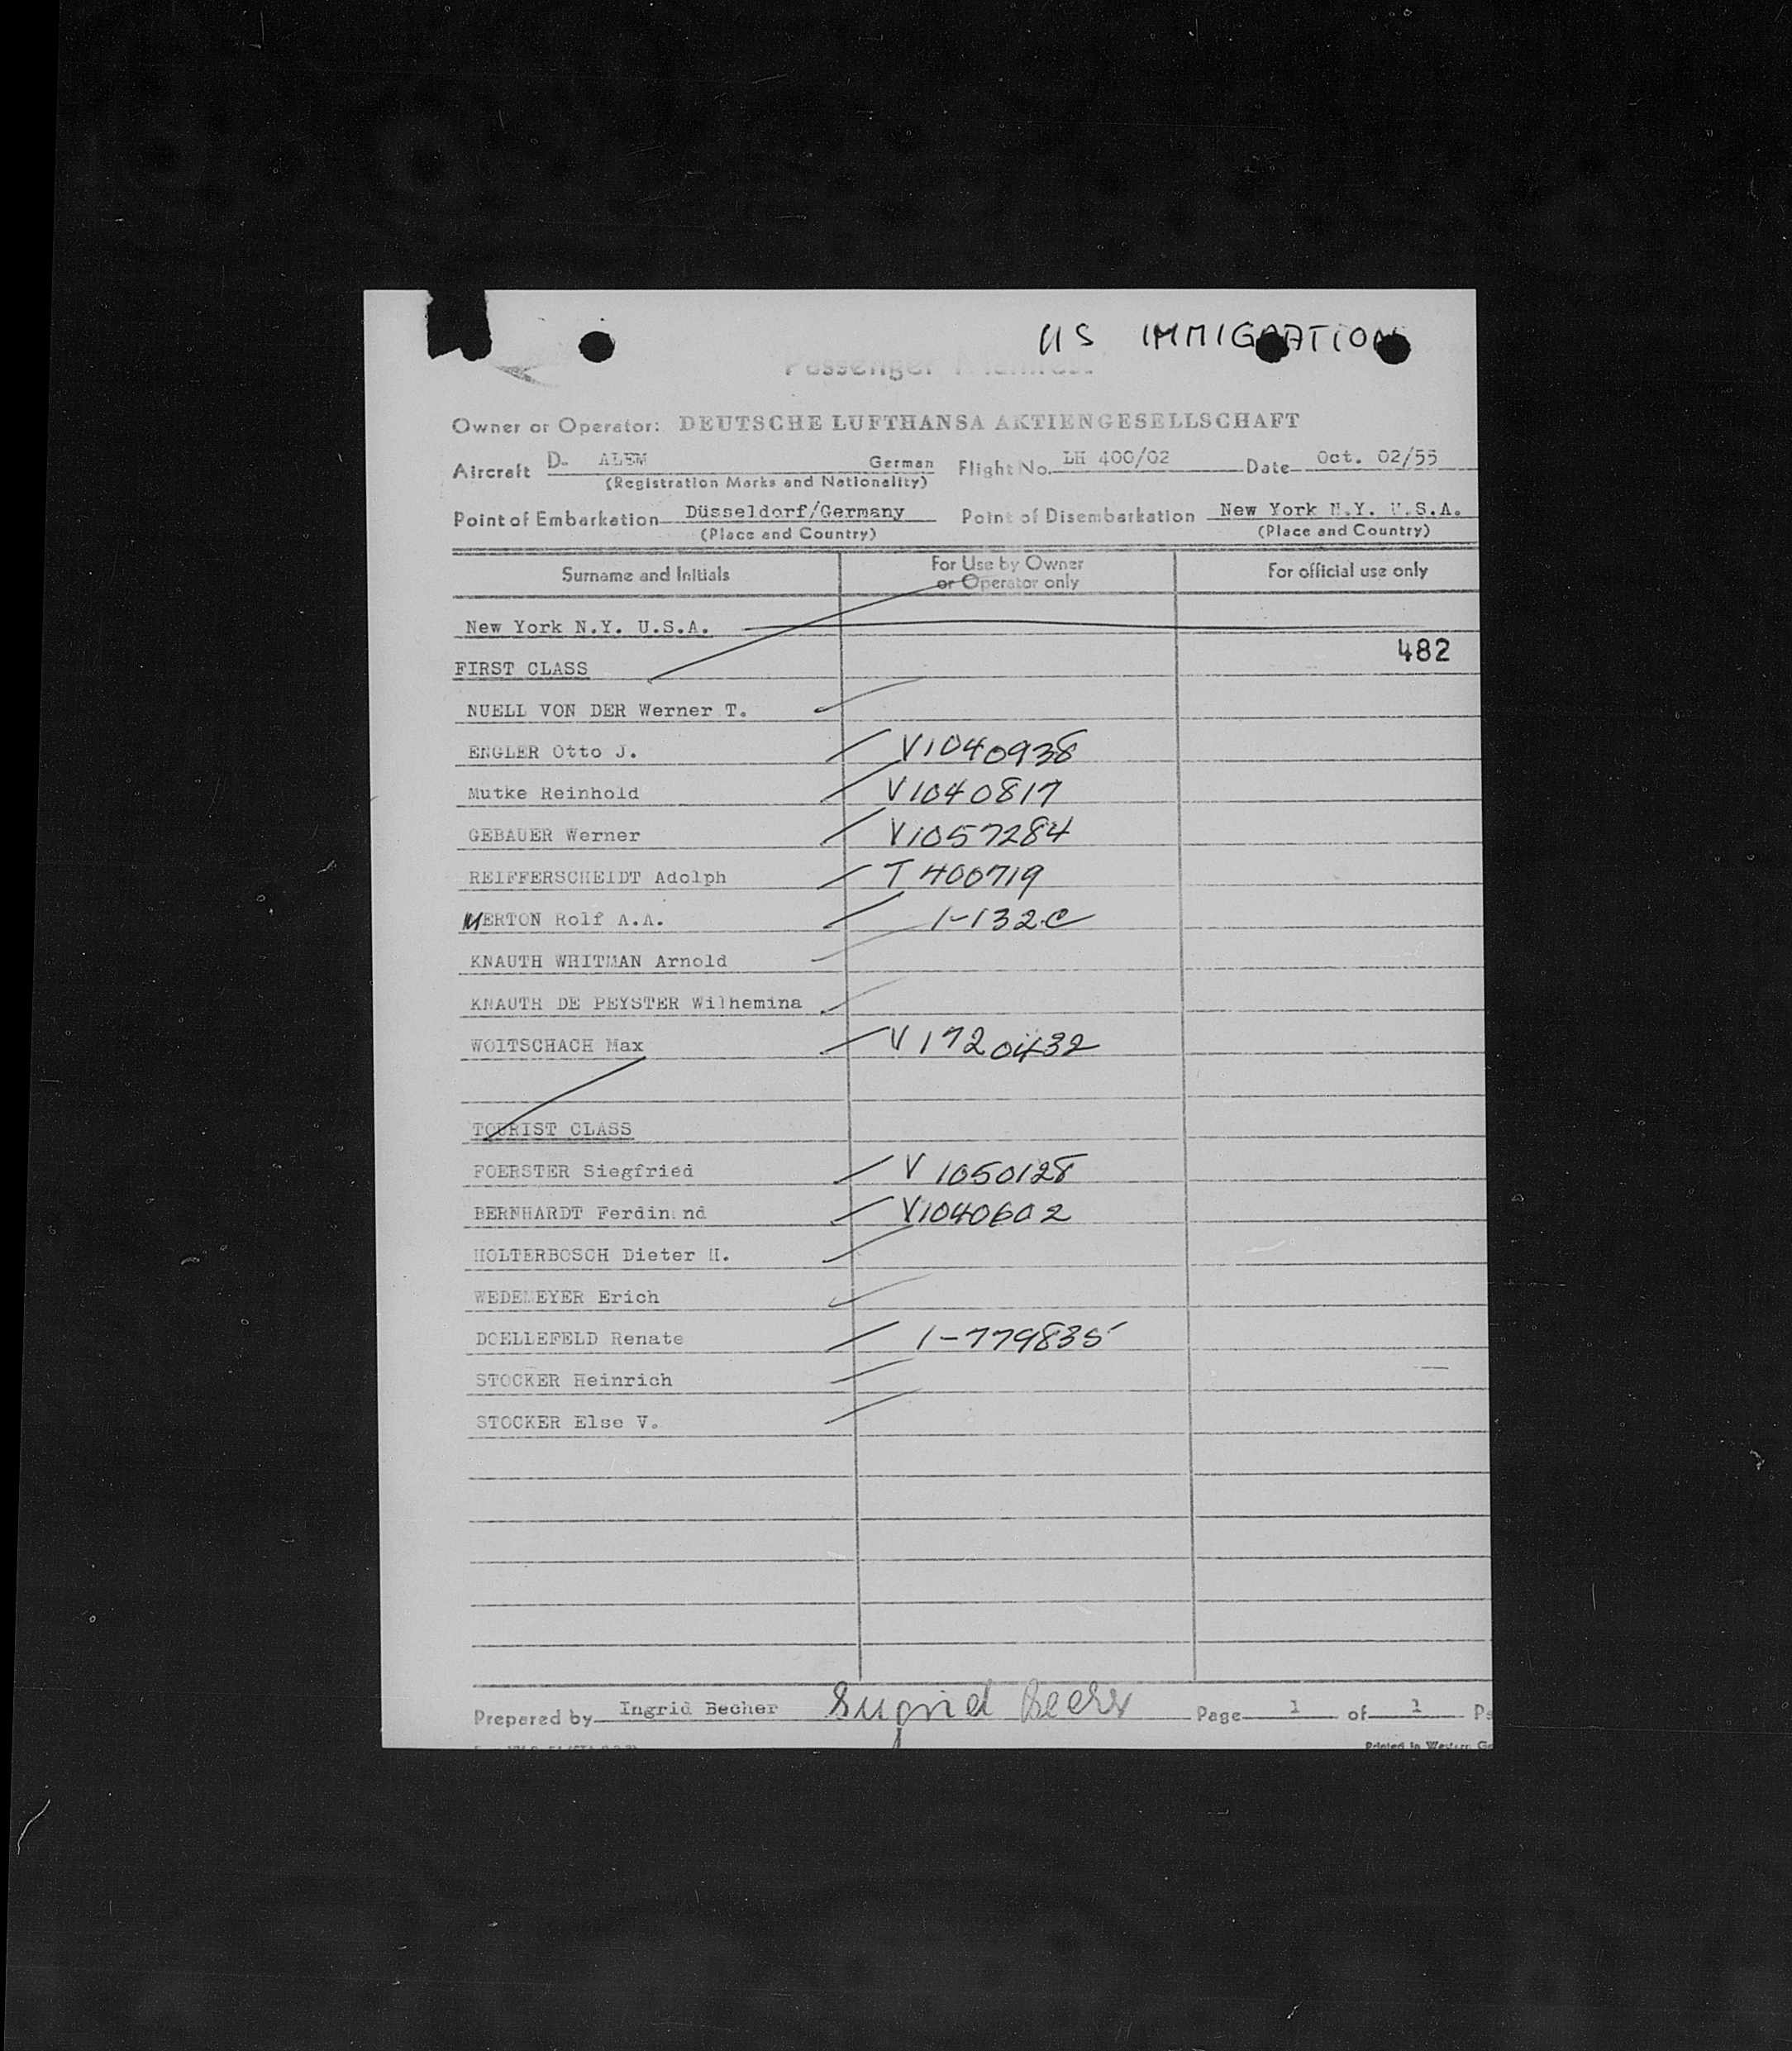 US IMMIGRATION
Passenger Manifest
Owner or Operator: DEUTSCHE LUFTHANSA AKTIENGESELLSCHAFT
Aircraft D- ALEM German Flight No. LH 400/02 Date Oct. 02/55
(Registration Marks and Nationality)
Point of Embarkation Düsseldorf/Germany Point of Disembarkation New York N.Y. U.S.A.
(Place and Country) (Place and Country)
Surname and Initials For Use by Owner or Operator only For official use only
New York N.Y. U.S.A.
482
FIRST CLASS
NUELL VON DER Werner T.
ENGLER Otto J. V1040938
Mutke Reinhold V1040817
GEBAUER Werner V1057284
REIFFERSCHEIDT Adolph T 400719
MERTON Rolf A.A. 1-132C
KNAUTH WHITMAN Arnold
KNAUTH DE PEYSTER Wilhemina
WOITSCHACH Max V1720432
TOURIST CLASS
FOERSTER Siegfried V 1050128
BERNHARDT Ferdin nd V1040602
HOLTERBOSCH Dieter H.
WEDEMEYER Erich
DOELLEFELD Renate 1-779835
STOCKER Heinrich
STOCKER Else V.
Prepared by Ingrid Becher Page 1 of 1
Printed in Western Ge